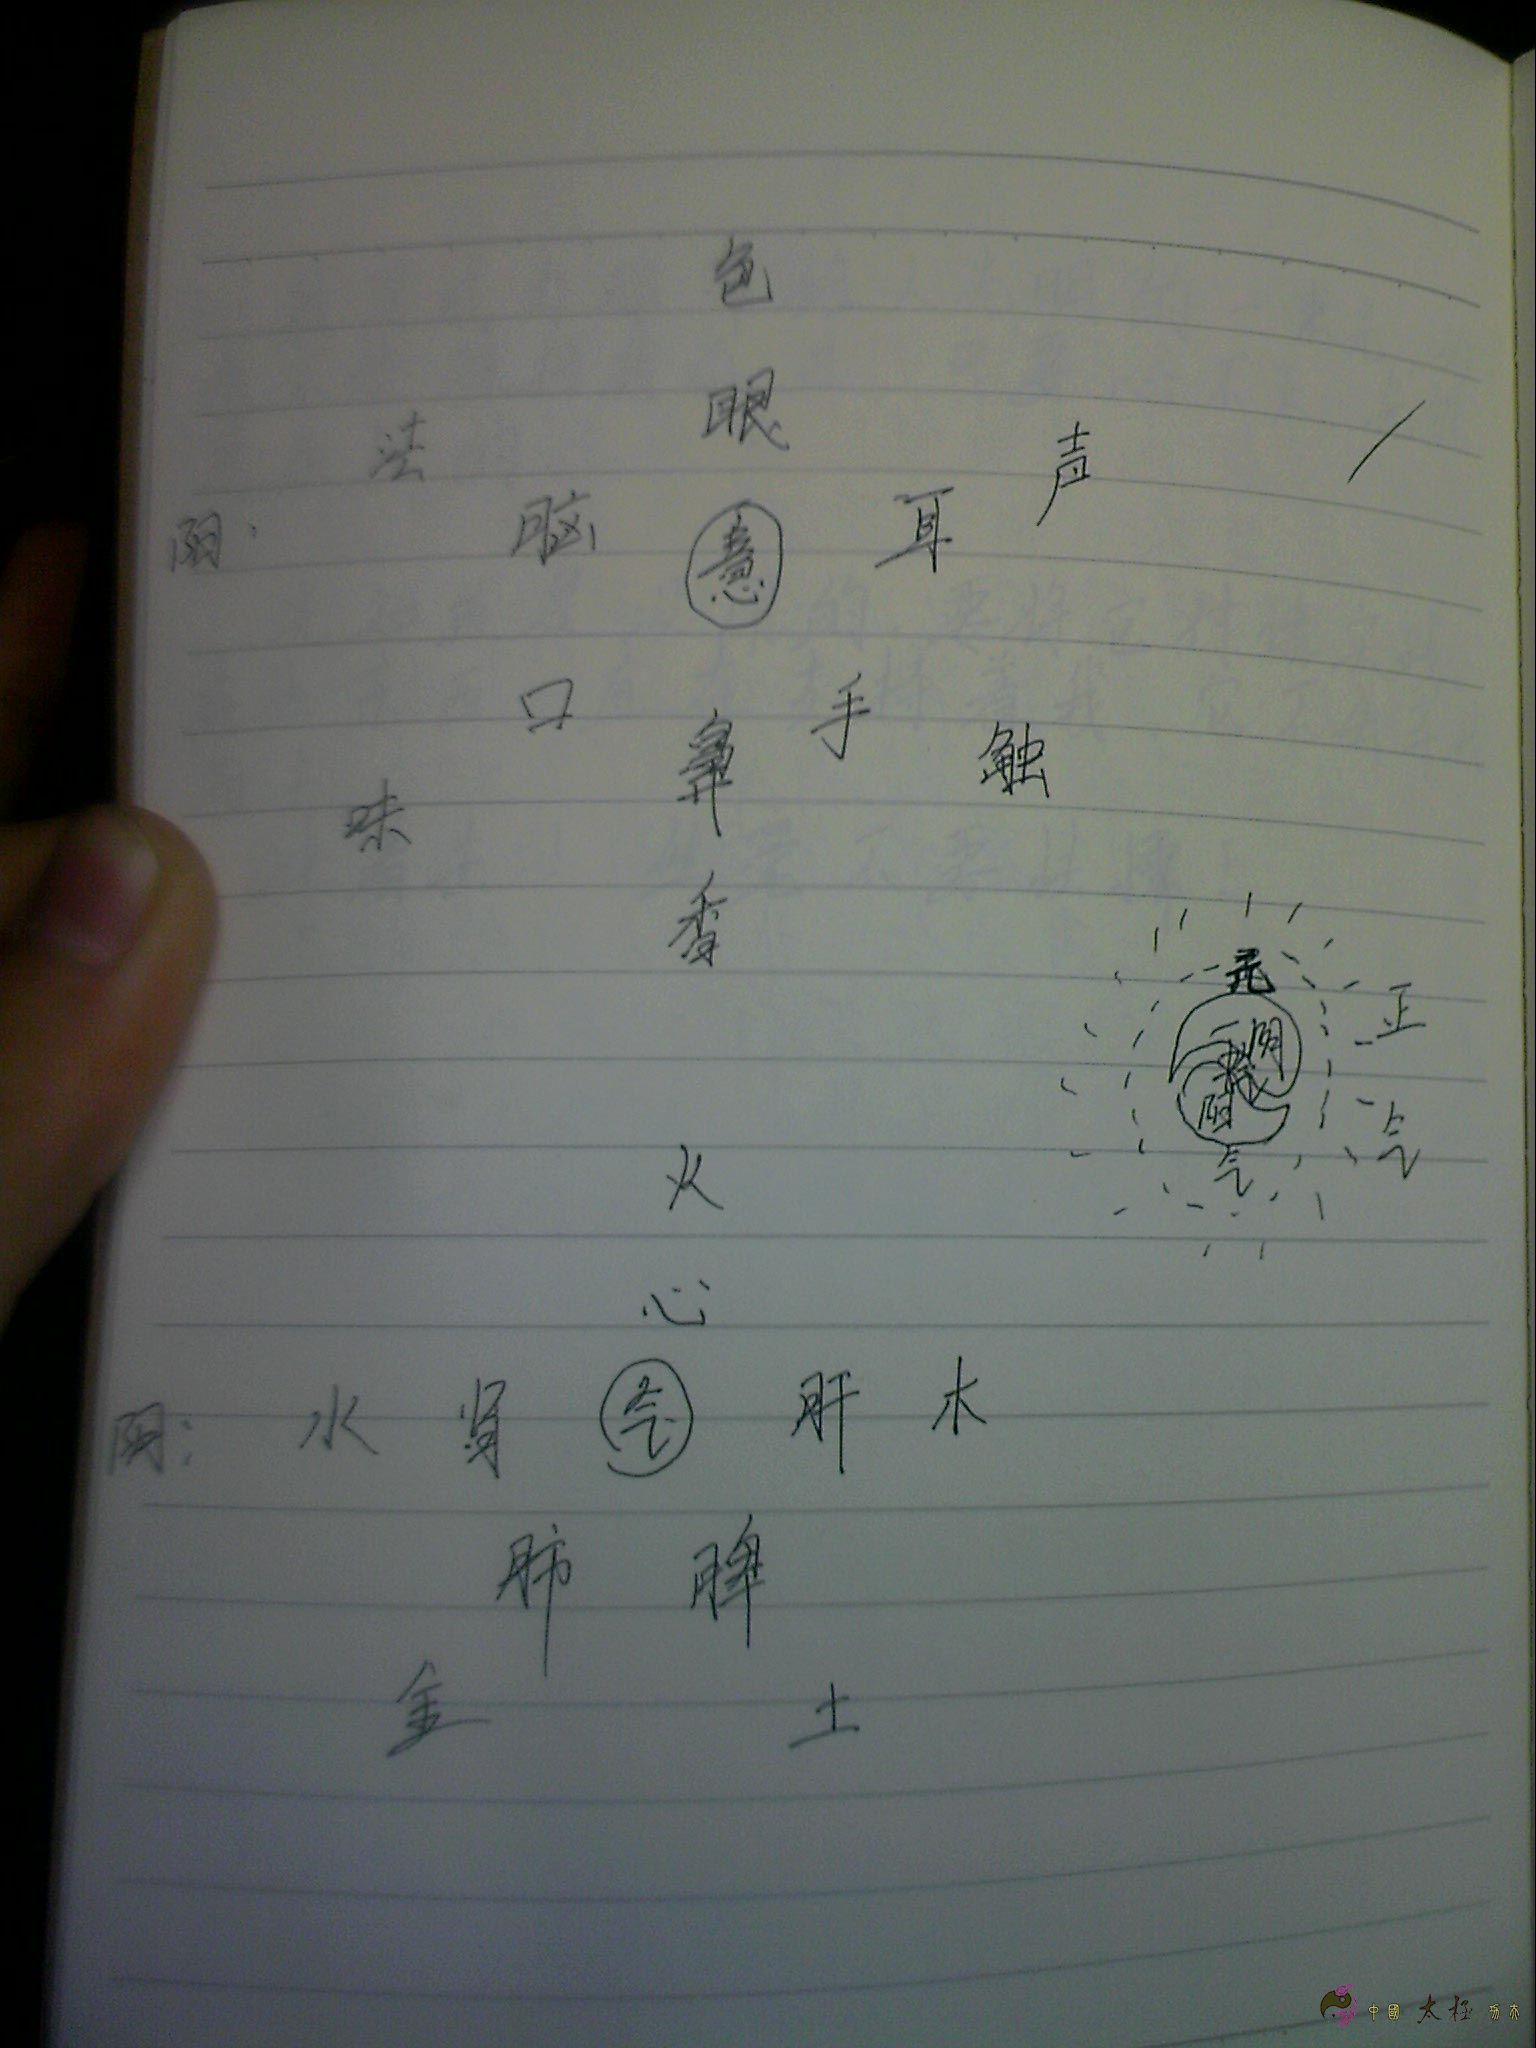 色
眼
法 声
阴： 脑 意 耳
口 鼻 手 触
味
香
元
正
阴
阳
气 气
火
心
阴： 水 肾 气 肝 木
肺 脾
金 土
中國 太极